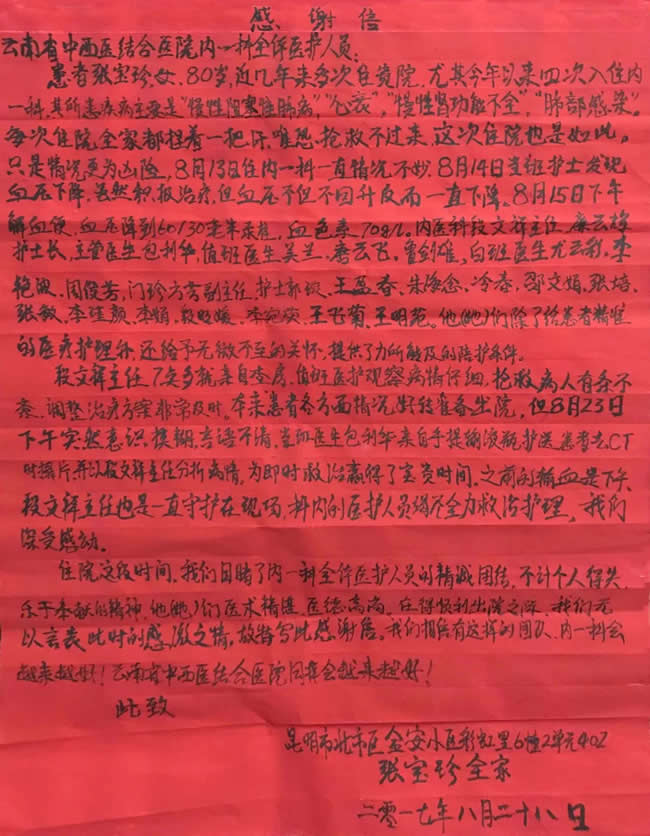 感谢信
云南省中西医结合医院内一科全体医护人员:
患者张宝珍,女、80岁,近几年来多次住贵院,尤其今年以来四次入住内
一科,其所患疾病主要是“慢性阻塞性肺病”,“心衰”,“慢性肾功能不全”,“肺部感染”。
每次住院,全家都捏着一把汗,唯恐抢救不过来,这次住院也是如此。
只是情况更为凶险,8月13日住内一科一直情况不妙,8月14日当班护士发现
血压下降,虽然积极治疗,但血压不但不回升反而一直下降。8月15日下午
解血便,血压降到60/30毫米汞柱,血色素70g/L。内一科段文祥主任、
护士长,主管医生包利华,值班医生吴兰、唐云飞、曾剑雄,白班医生尤云利、李
周俊芳,门诊方芳副主任,护士郭 王 春、朱海念、冷 、邵文娟、张培、
张敏、李 颜、李娟、段 媛、李 王飞菊、王明苑。他(她)们除了给患者精准
的医疗护理外,还给予无微不至的关怀,提供了力所能及的陪护条件。
段文祥主任7点多就亲自查房,值班医护观察病情仔细,抢救病人有条不
紊,调整治疗方案非常及时。本来患者各方面情况好转准备出院,但8月23日
下午突然意识模糊,言语不清,当班医生包利华亲自手提输液瓶护送患者去CT
时摄片,并以段文祥主任分析病情,为即时救治赢得了宝贵时间,之前的输血是下午,
段文祥主任也是一直守护在现场,科内的医护人员竭尽全力救治护理,我们
深受感动。
住院这段时间,我们目睹了内一科全体医护人员的精诚团结,不计个人得失,
乐于奉献的精神,他(她)们医术精湛,医德高尚,在得以顺利出院之际,我们无
以言表此时的感激之情,故特写此感谢信。我们相信有这样的团队,内一科会
越来越好!云南省中西医结合医院同样会越来越好!
此致
昆明市北市区金安小区彩虹里6幢2单元402
张宝珍全家
二零一七年八月二十八日